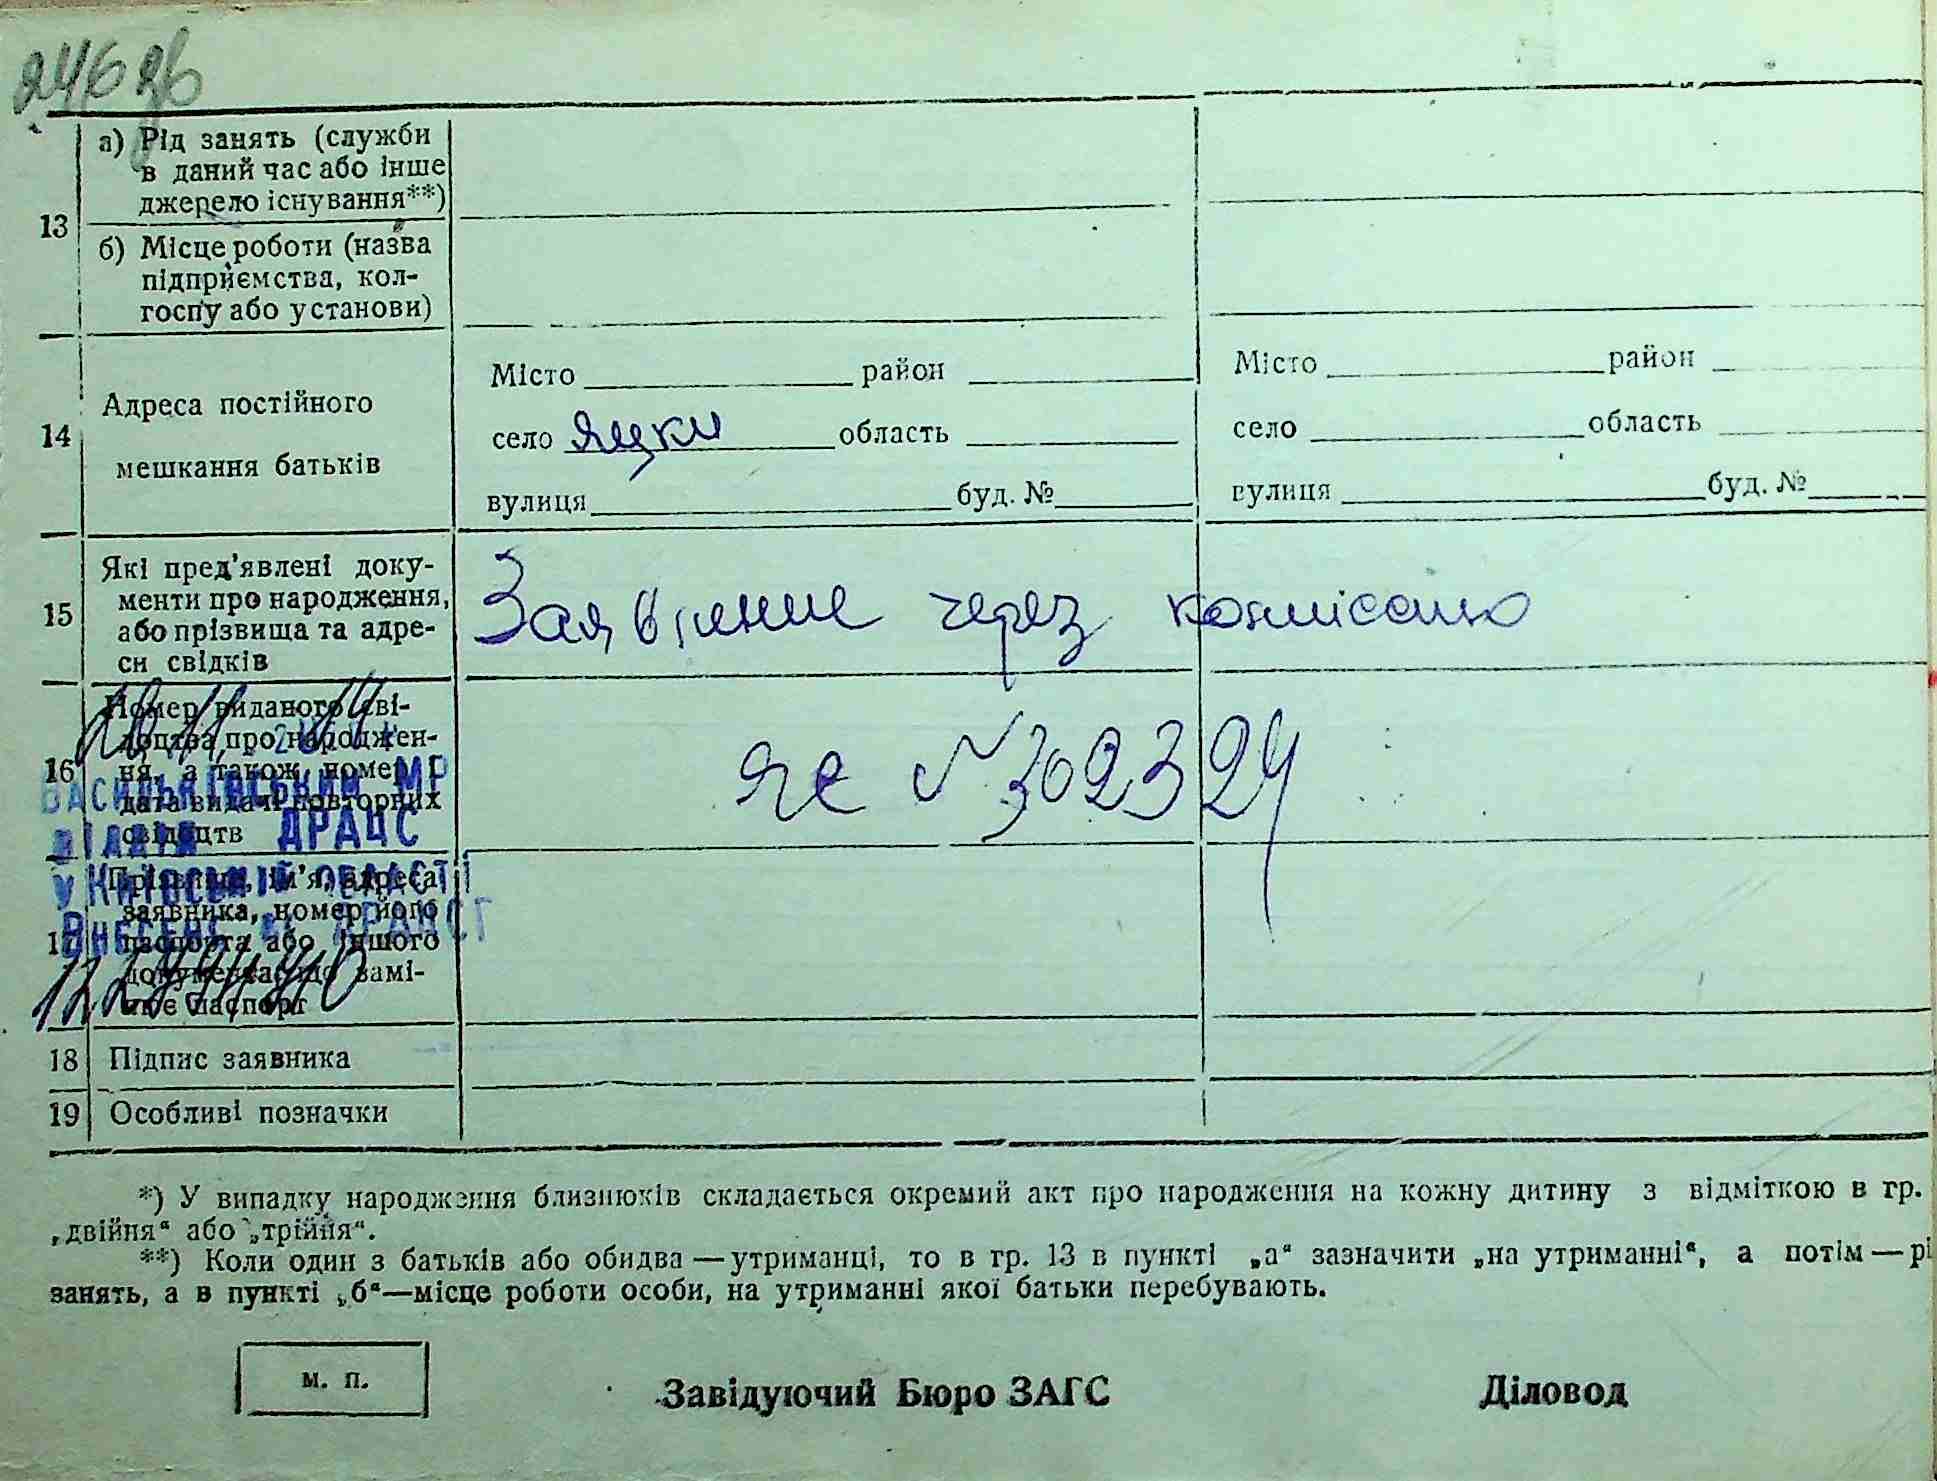 246 зв
13
а) Рід занять (служби
в даний час або інше
джерело існування**)
б) Місце роботи (назва
підприємства, кол-
госпу або установи)
14
Адреса постійного
мешкання батьків
Місто район
село Яцки область
вулиця буд. №
Місто район
село область
вулиця буд. №
15
Які пред’явлені доку-
менти про народження,
або прізвища та адре-
си свідків
Заявление через комисию
16
Номер виданого сві-
доцтва про народжен-
ня, а також номер і
дата видачі повторних
свідоцтв
ЯЄ №302324
20.11.2014
ВАСИЛЬКІВСЬКИЙ МР
ВІДДІЛ ДРАЦС
У КИЇВСЬКІЙ ОБЛАСТІ
ВНЕСЕНЕ ДО ДРАЦСГ
17
Прізвище, ім’я, адреса
заявника, номер його
паспорта або іншого
документа, що замі-
нює паспорт
18
Підпис заявника
19
Особливі позначки
*) У випадку народження близнюків складається окремий акт про народження на кожну дитину з відміткою в гр.
„двійня“ або „трійня“.
**) Коли один з батьків або обидва — утриманці, то в гр. 13 в пункті „а“ зазначити „на утриманні“, а потім — рі
занять, а в пункті „б“—місце роботи особи, на утриманні якої батьки перебувають.
м. п.
Завідуючий Бюро ЗАГС
Діловод